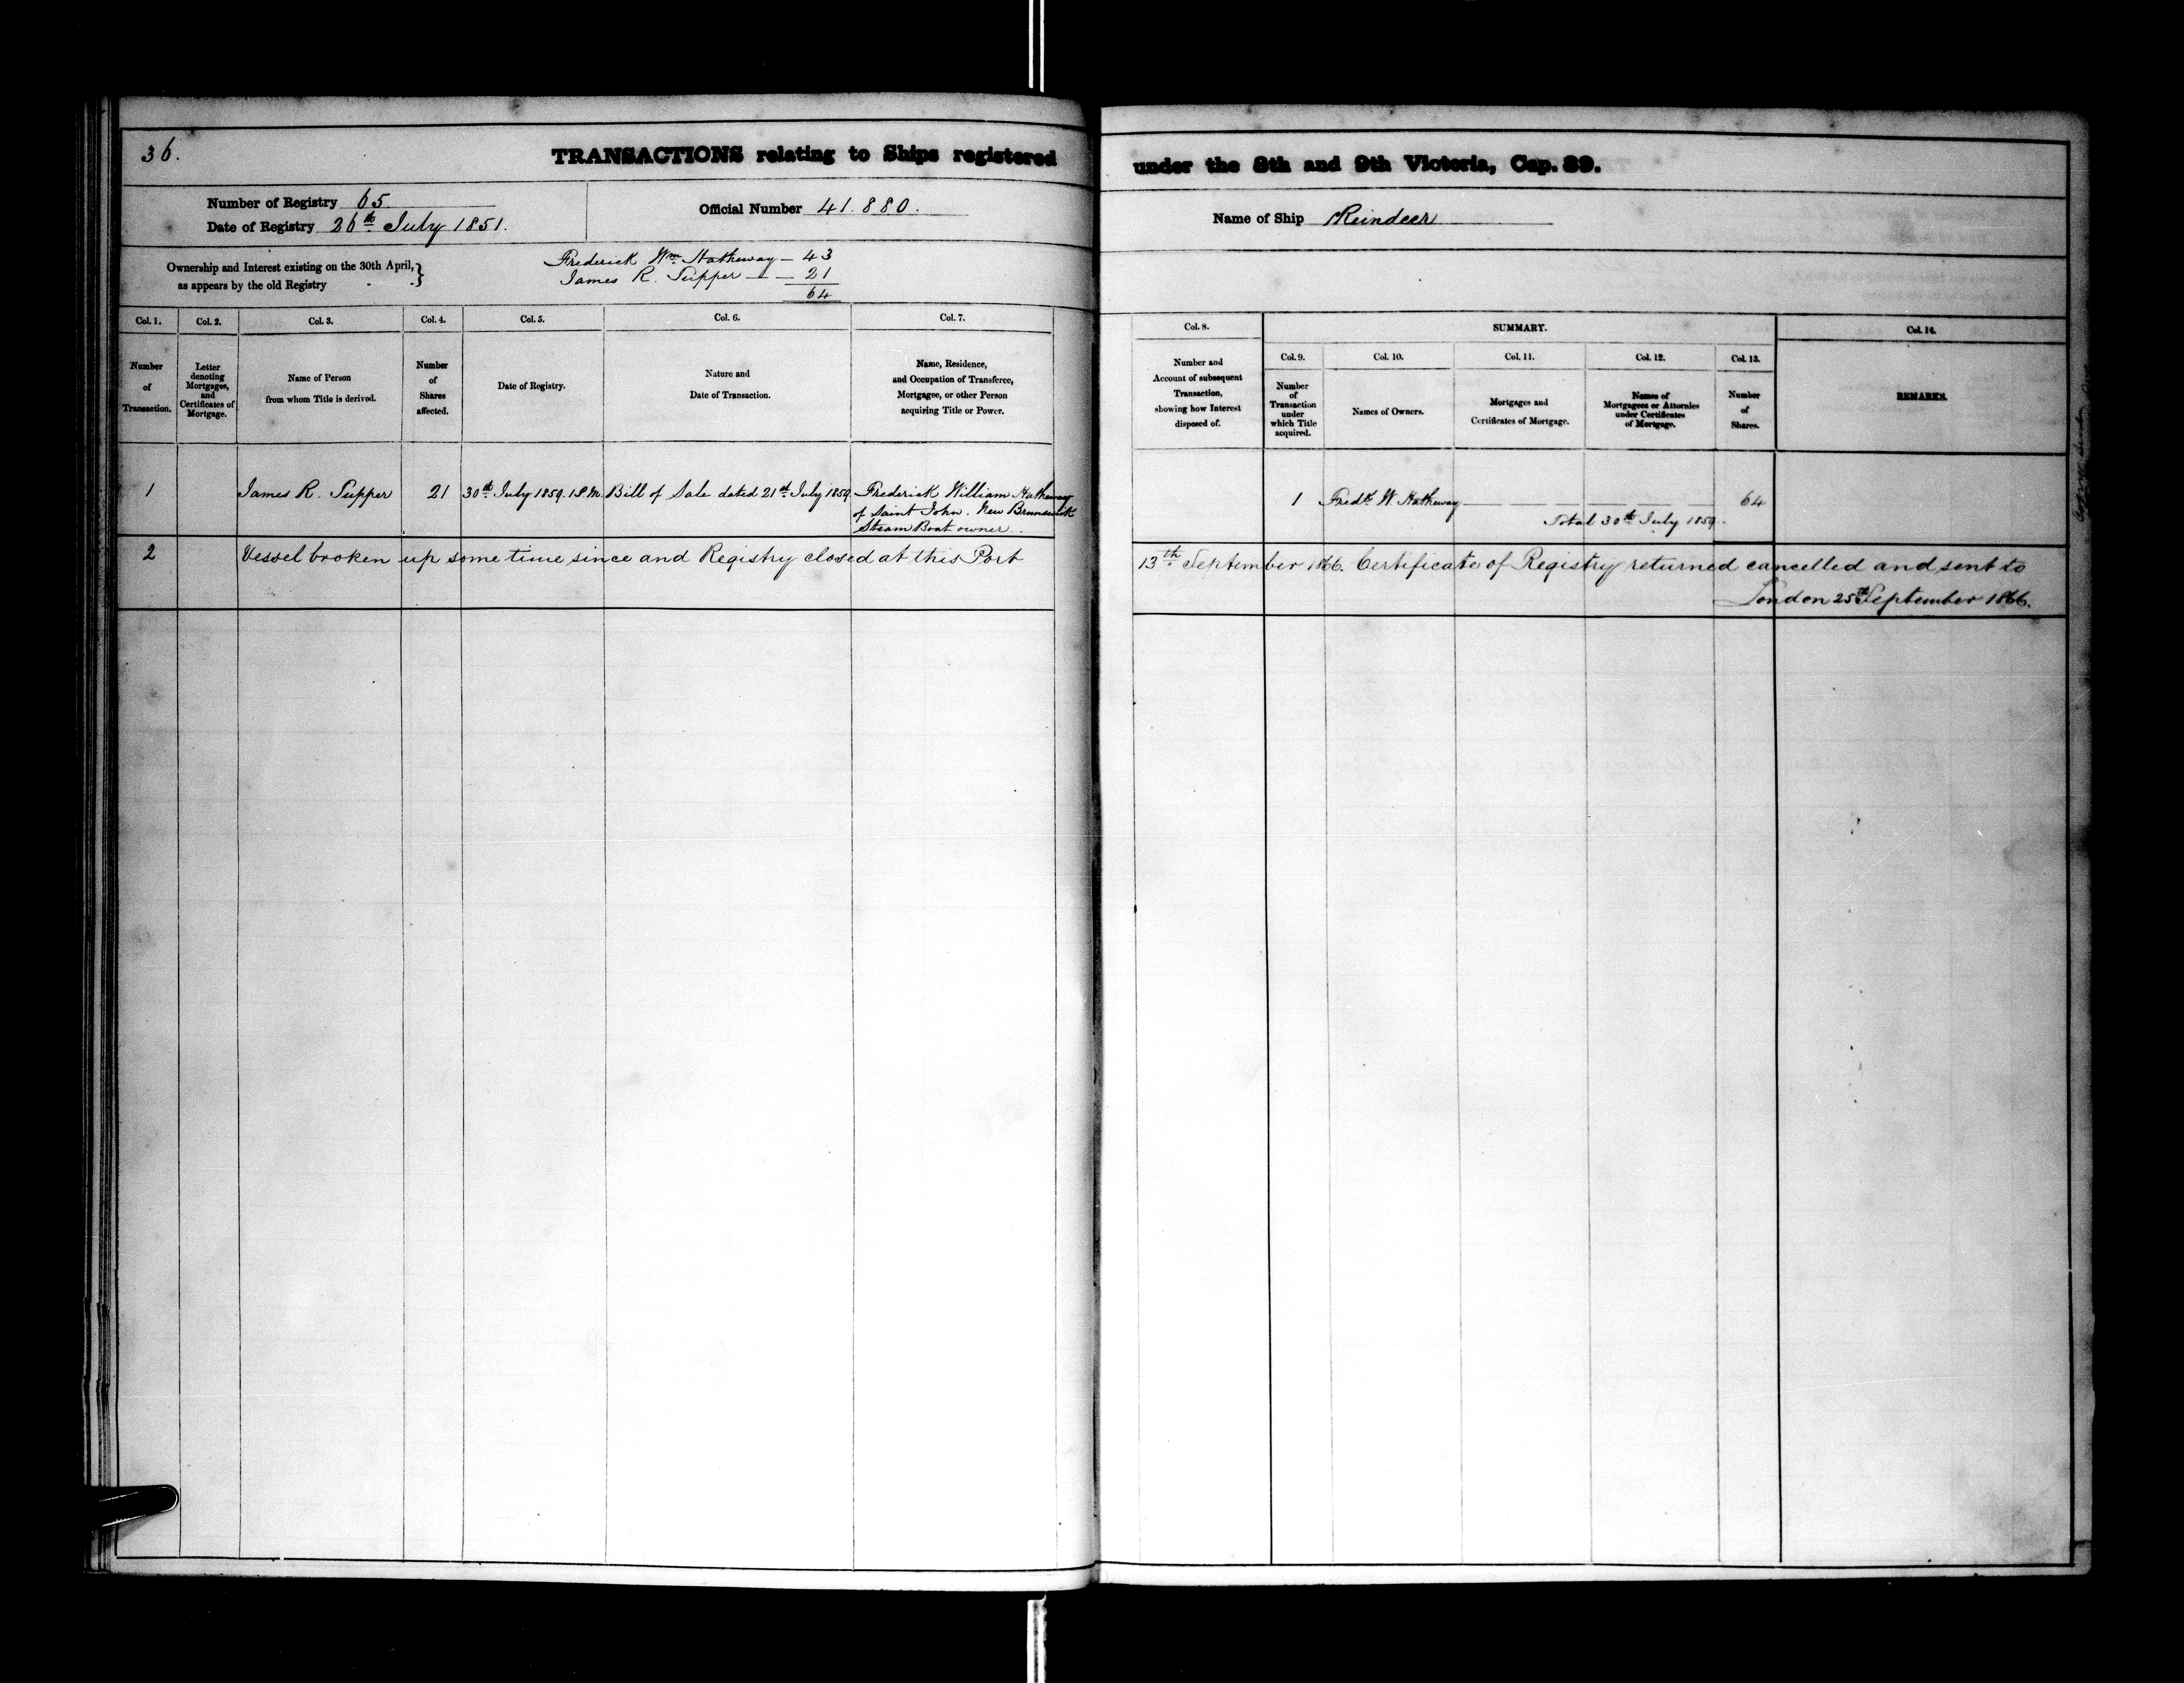 36.
TRANSACTIONS relating to Ships registered under the 8th and 9th Victoria, Cap. 89.
Number of Registry 65.
Date of Registry 26th July 1851.
Official Number 41.880.
Name of Ship Reindeer
Ownership and Interest existing on the 30th April, as appears by the old Registry
Frederick Wm. Hatheway — 43
James R. Tupper — — 21
64
Col. 1.
Number
of
Transaction.
Col. 2.
Letter
denoting
Mortgages,
and
Certificates of
Mortgage.
Col. 3.
Name of Person
from whom Title is derived.
Col. 4.
Number
of
Shares
affected.
Col. 5.
Date of Registry.
Col. 6.
Nature and
Date of Transaction.
Col. 7.
Name, Residence,
and Occupation of Transferee,
Mortgagee, or other Person
acquiring Title or Power.
Col. 8.
Number and
Account of subsequent
Transaction,
showing how Interest
disposed of.
SUMMARY.
Col. 9.
Number
of
Transaction
under
which Title
acquired.
Col. 10.
Names of Owners.
Col. 11.
Mortgages and
Certificates of Mortgage.
Col. 12.
Names of
Mortgagees or Attornies
under Certificates
of Mortgage.
Col. 13.
Number
of
Shares.
Col. 14.
REMARKS.
1 James R. Tupper 21 30th July 1859. 1 P.M. Bill of Sale dated 21st July 1859 Frederick William Hatheway
of Saint John. New Brunswick
Steam Boat owner.
1 Fredk. W. Hatheway — — — — 64
Total 30th July 1859.
2 Vessel broken up some time since and Registry closed at this Port 13th September 1866. Certificate of Registry returned cancelled and sent to
London 25th September 1866.